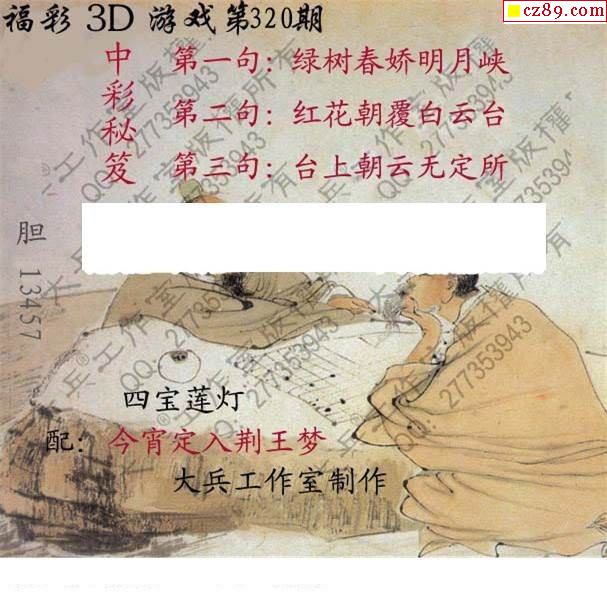 福彩 3D 游戏第320期
cz89.com
中彩秘笈
第一句：绿树春娇明月峡
第二句：红花朝覆白云台
第三句：台上朝云无定所
胆 13457
四宝莲灯
配：今宵定入荆王梦
大兵工作室制作
大兵工作室版权所有
QQ：277353943